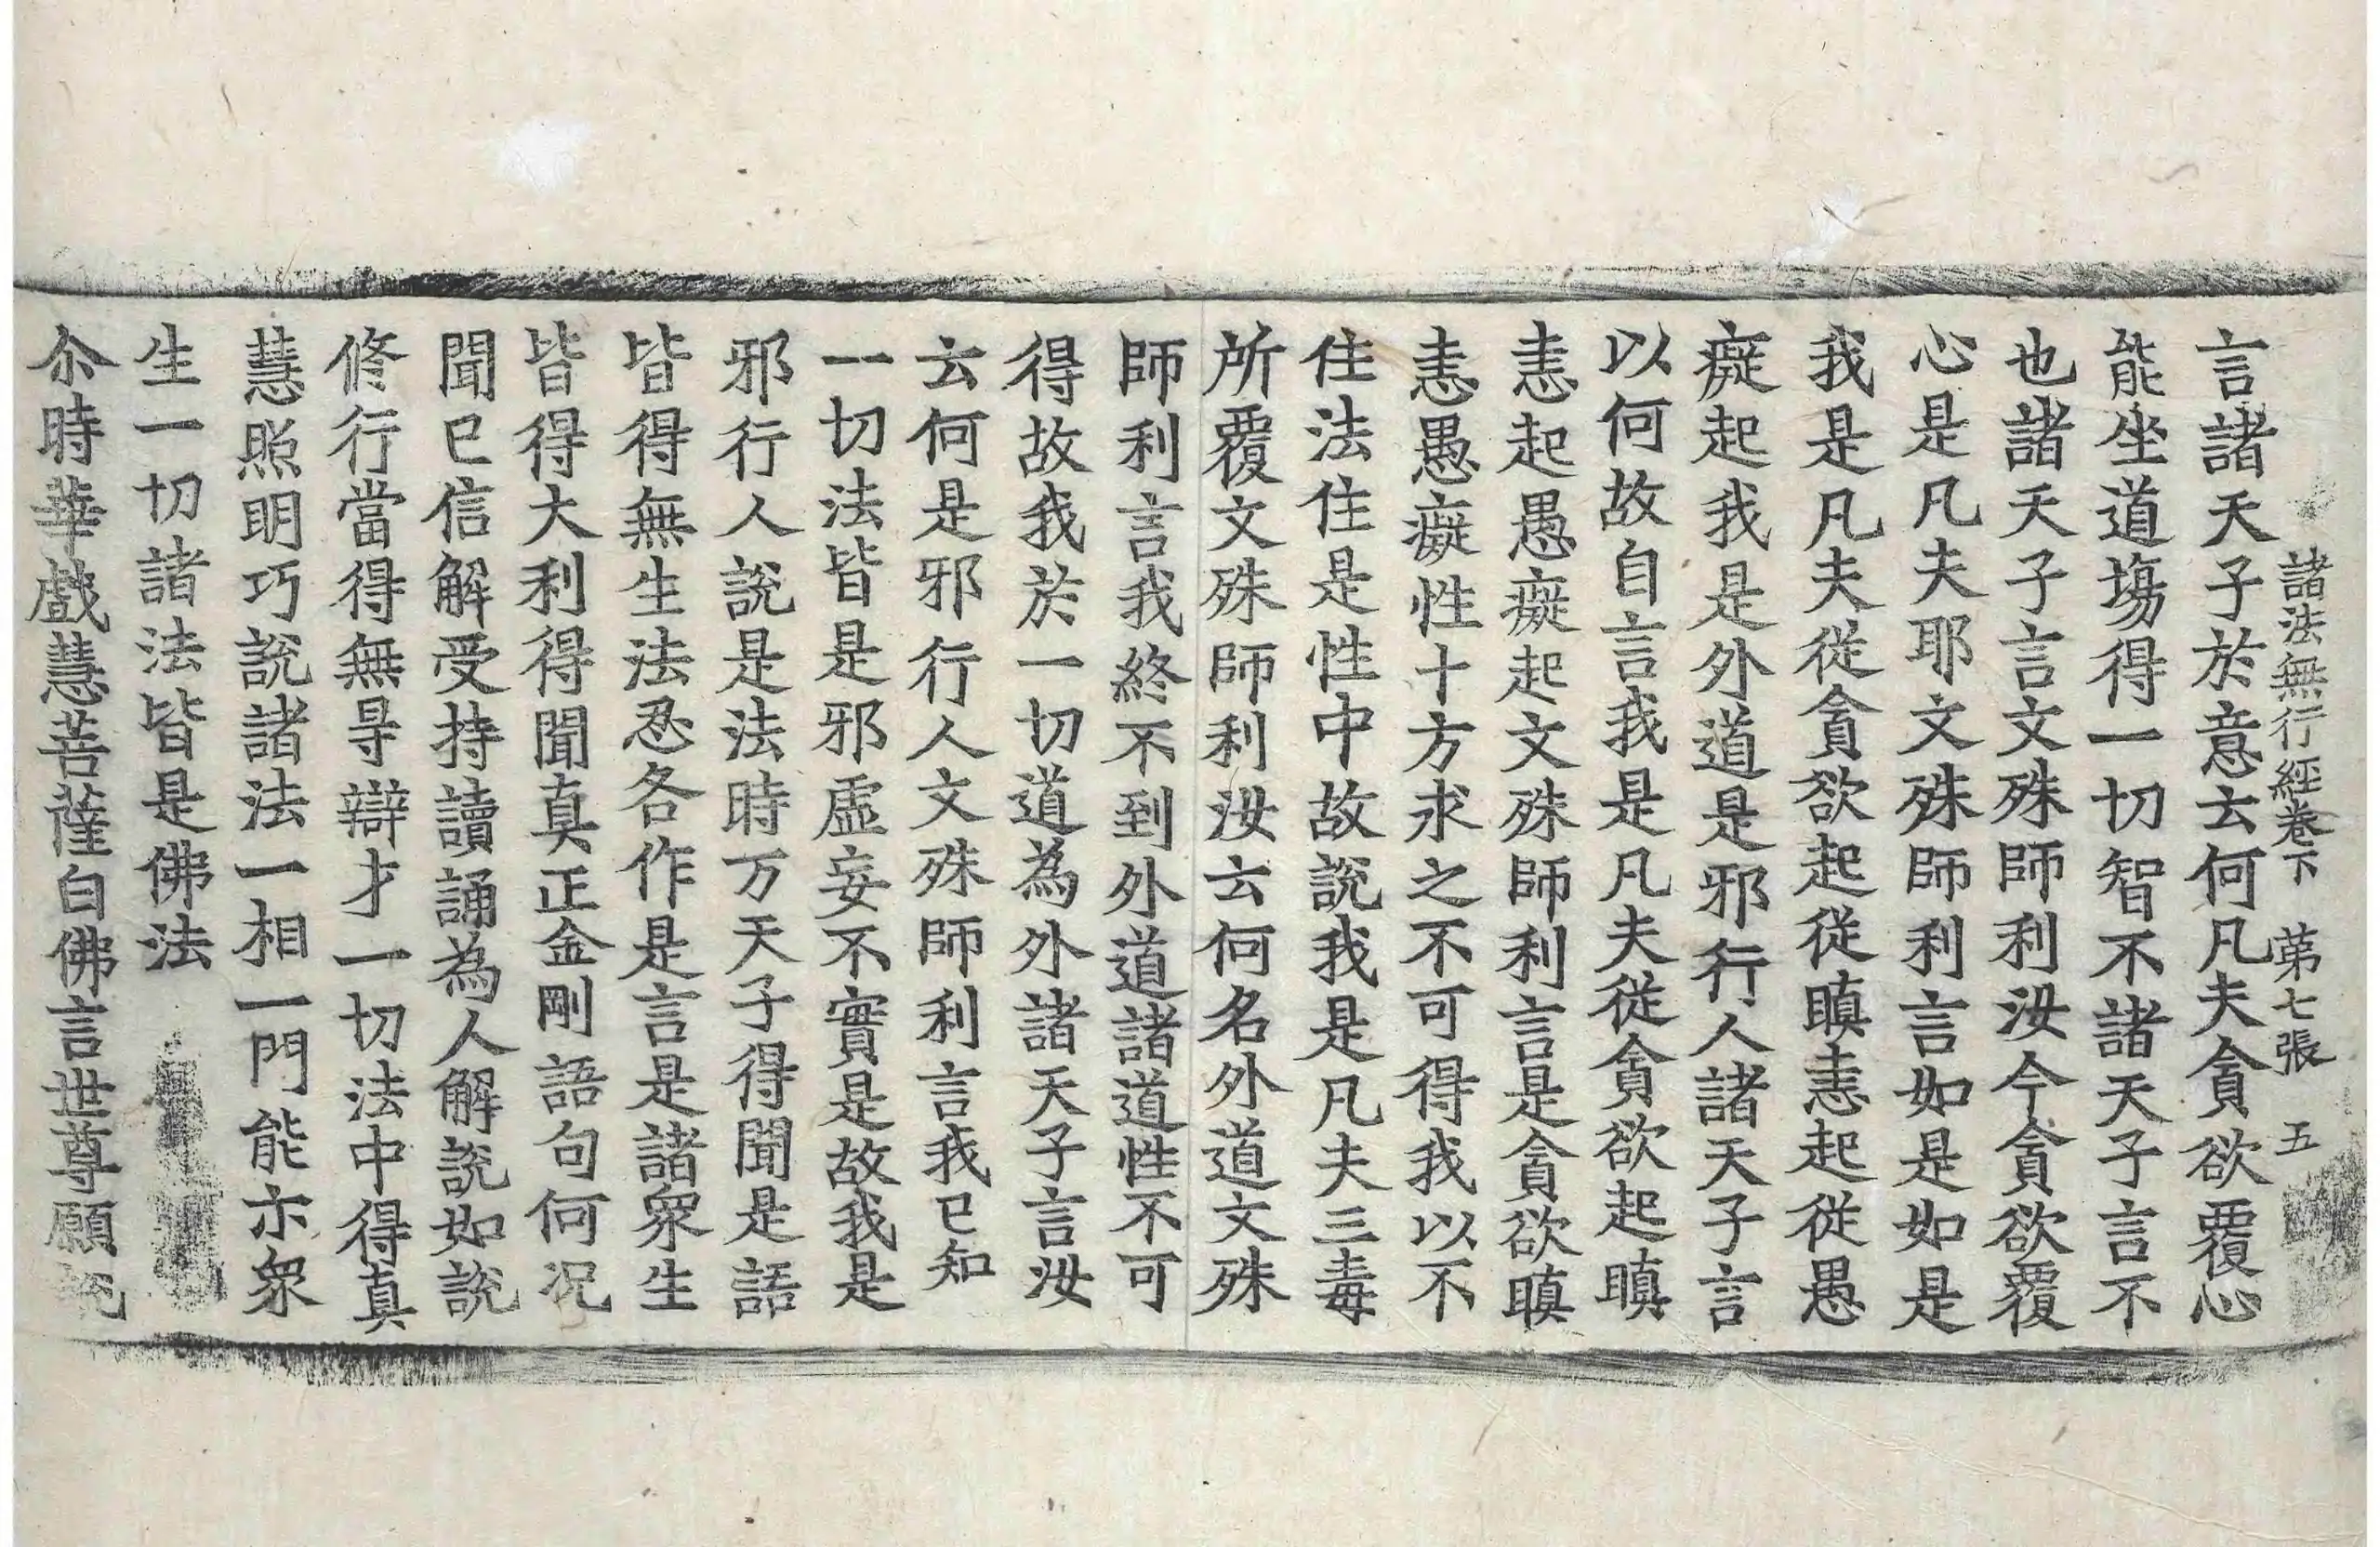 諸法無行經卷下　苐七張　五
言諸天子於意云何凡夫貪欲覆心
能坐道塲得一切智不諸天子言不
也諸天子言文殊師利汝今貪欲覆
心是凡夫耶文殊師利言如是如是
我是凡夫從貪欲起從瞋恚起從愚
癡起我是外道是邪行人諸天子言
以何故自言我是凡夫從貪欲起瞋
恚起愚癡起文殊師利言是貪欲瞋
恚愚癡性十方求之不可得我以不
住法住是性中故說我是凡夫三毒
所覆文殊師利汝云何名外道文殊
師利言我終不到外道諸道性不可
得故我於一切道為外諸天子言汝
云何是邪行人文殊師利言我已知
一切法皆是邪虛妄不實是故我是
邪行人說是法時万天子得聞是語
皆得無生法忍各作是言是諸衆生
皆得大利得聞真正金剛語句何况
聞已信解受持讀誦為人解說如說
修行當得無㝵辯才一切法中得真
慧照明巧說諸法一相一門能示衆
生一切諸法皆是佛法
尒時華戲慧菩薩白佛言世尊願